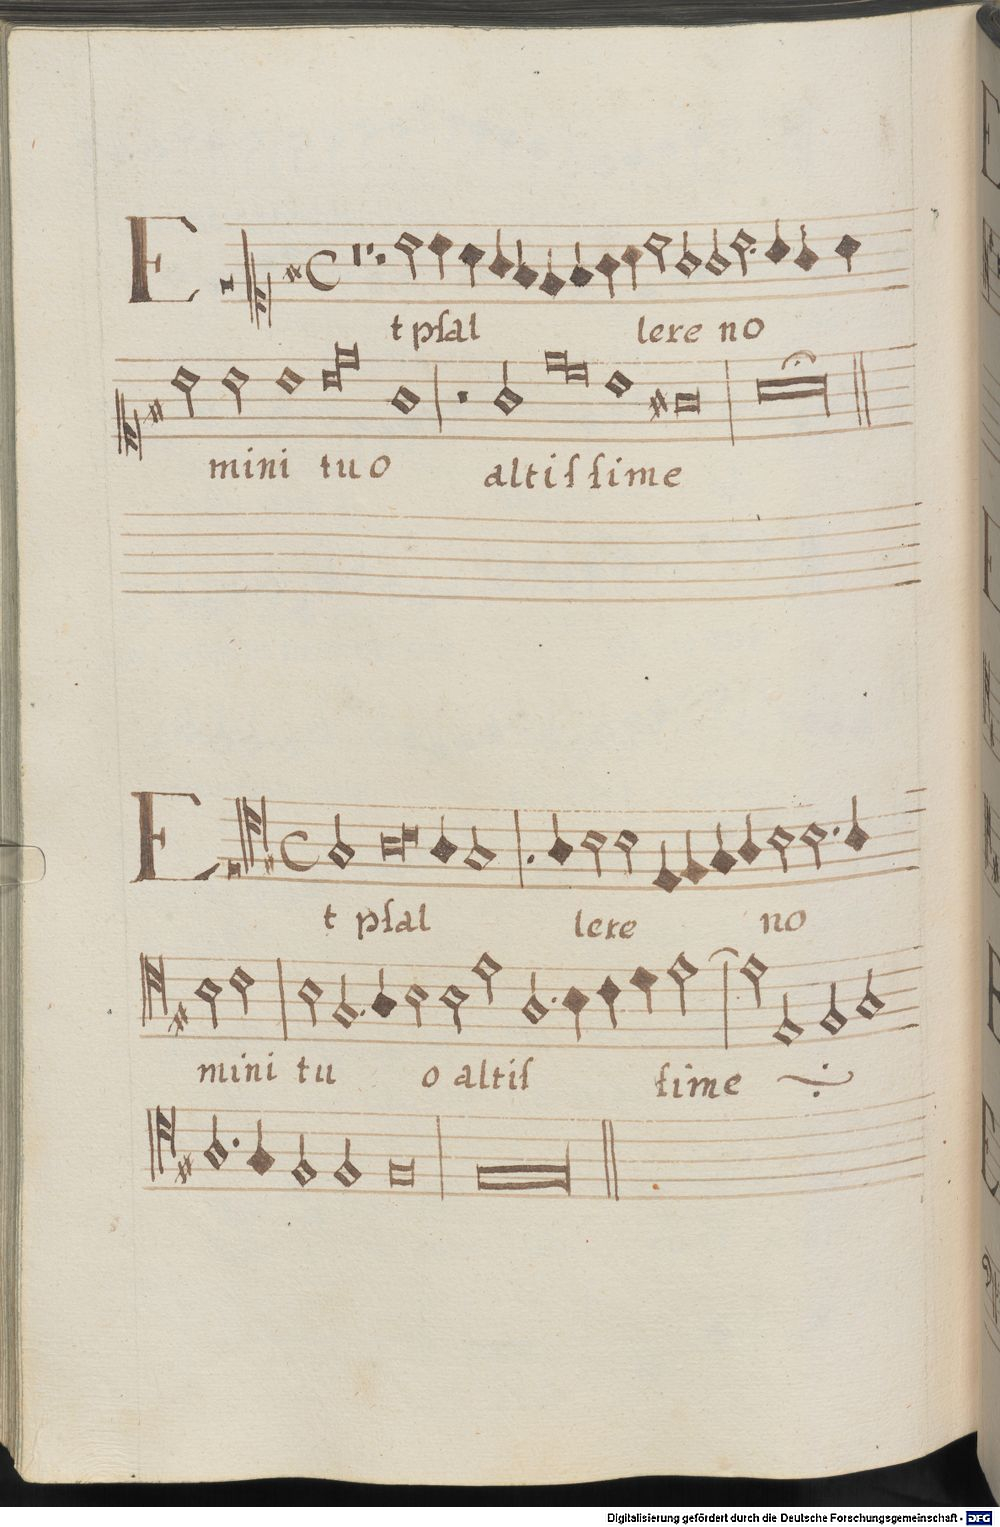 Et psal lere no
mini tuo altissime
Et psal lere no
mini tu o altis sime
Digitalisierung gefördert durch die Deutsche Forschungsgemeinschaft - DFG